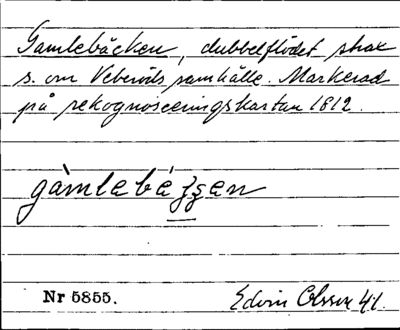 Gamlebäcken, dubbelflödet strax
s. om Veberöds samhälle. Markerad
på rekognosceringskartan 1812.
gàmlebéʒʒen
Nr 5855.
Edvin Olsson 41.